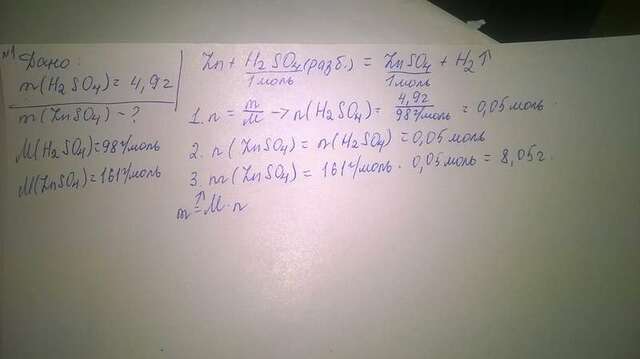 №1
Дано:
m(H₂SO₄)=4,9г
m(ZnSO₄) - ?
M(H₂SO₄)=98г/моль
M(ZnSO₄)=161г/моль
Zn + H₂SO₄(разб.) = ZnSO₄ + H₂↑
1моль 1моль
1. n = m/M → n(H₂SO₄) = 4,9г/98г/моль = 0,05моль.
2. n(ZnSO₄) = n(H₂SO₄) = 0,05моль
3. m(ZnSO₄) = 161г/моль · 0,05моль = 8,05г.
↑
m = M·n